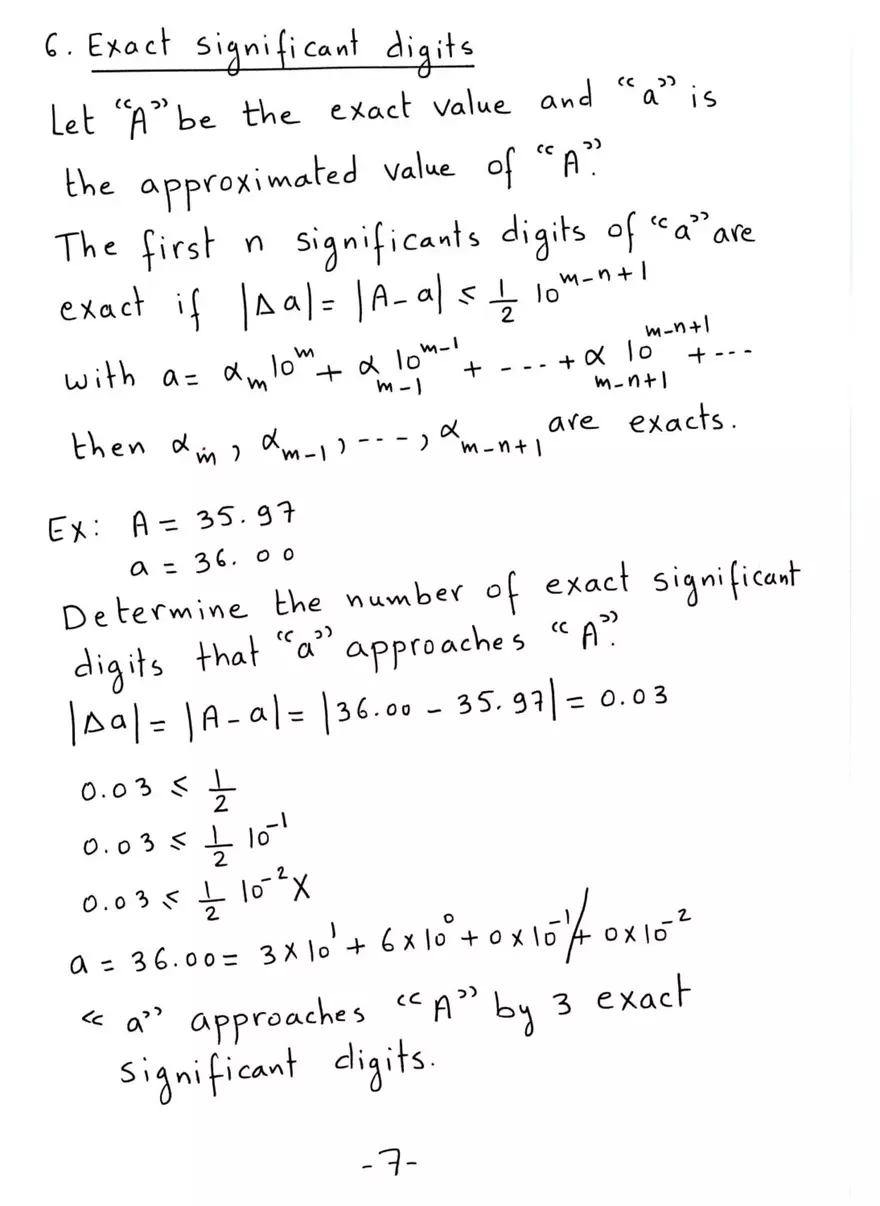 6. Exact significant digits
Let “A” be the exact value and “a” is
the approximated value of “A”.
The first n significants digits of “a” are
exact if |Δa| = |A - a| ≤ 1/2 10^{m-n+1}
with a = α_m 10^m + α_{m-1} 10^{m-1} + ---- + α_{m-n+1} 10^{m-n+1} + ---
then α_m, α_{m-1}, ---, α_{m-n+1} are exacts.
Ex: A = 35.97
a = 36.00
Determine the number of exact significant
digits that “a” approaches “A”.
|Δa| = |A - a| = |36.00 - 35.97| = 0.03
0.03 ≤ 1/2
0.03 ≤ 1/2 10^{-1}
0.03 ≤ 1/2 10^{-2} X
a = 36.00 = 3 x 10^1 + 6 x 10^0 + 0 x 10^{-1} / + 0 x 10^{-2}
“a” approaches “A” by 3 exact
significant digits.
-7-